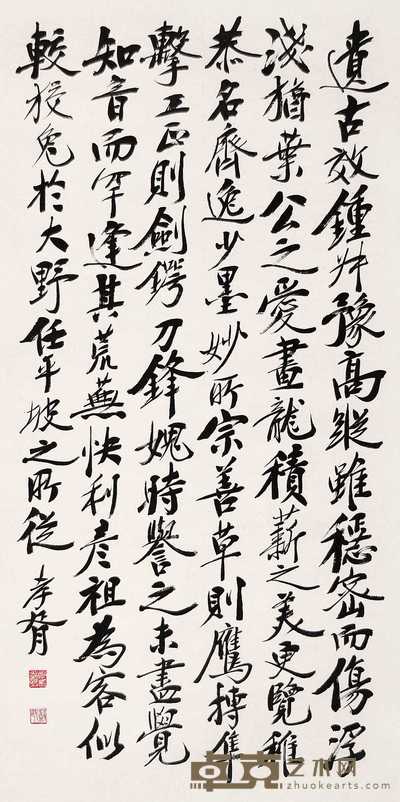 遺古效鍾叶豫高蹤雖穩密而傷浮
淺猶葉公之愛畫龍積薪之美更覽稚
恭名齊逸少墨妙所宗善草則鷹摶隼
擊工正則劍鍔刀鋒媿時譽之未盡覺
知音而罕逢其荒蕪快利彥祖為容似
較狡兔於大野任平坡之所從 孝胥
卓克艺术网
zhuokearts.com